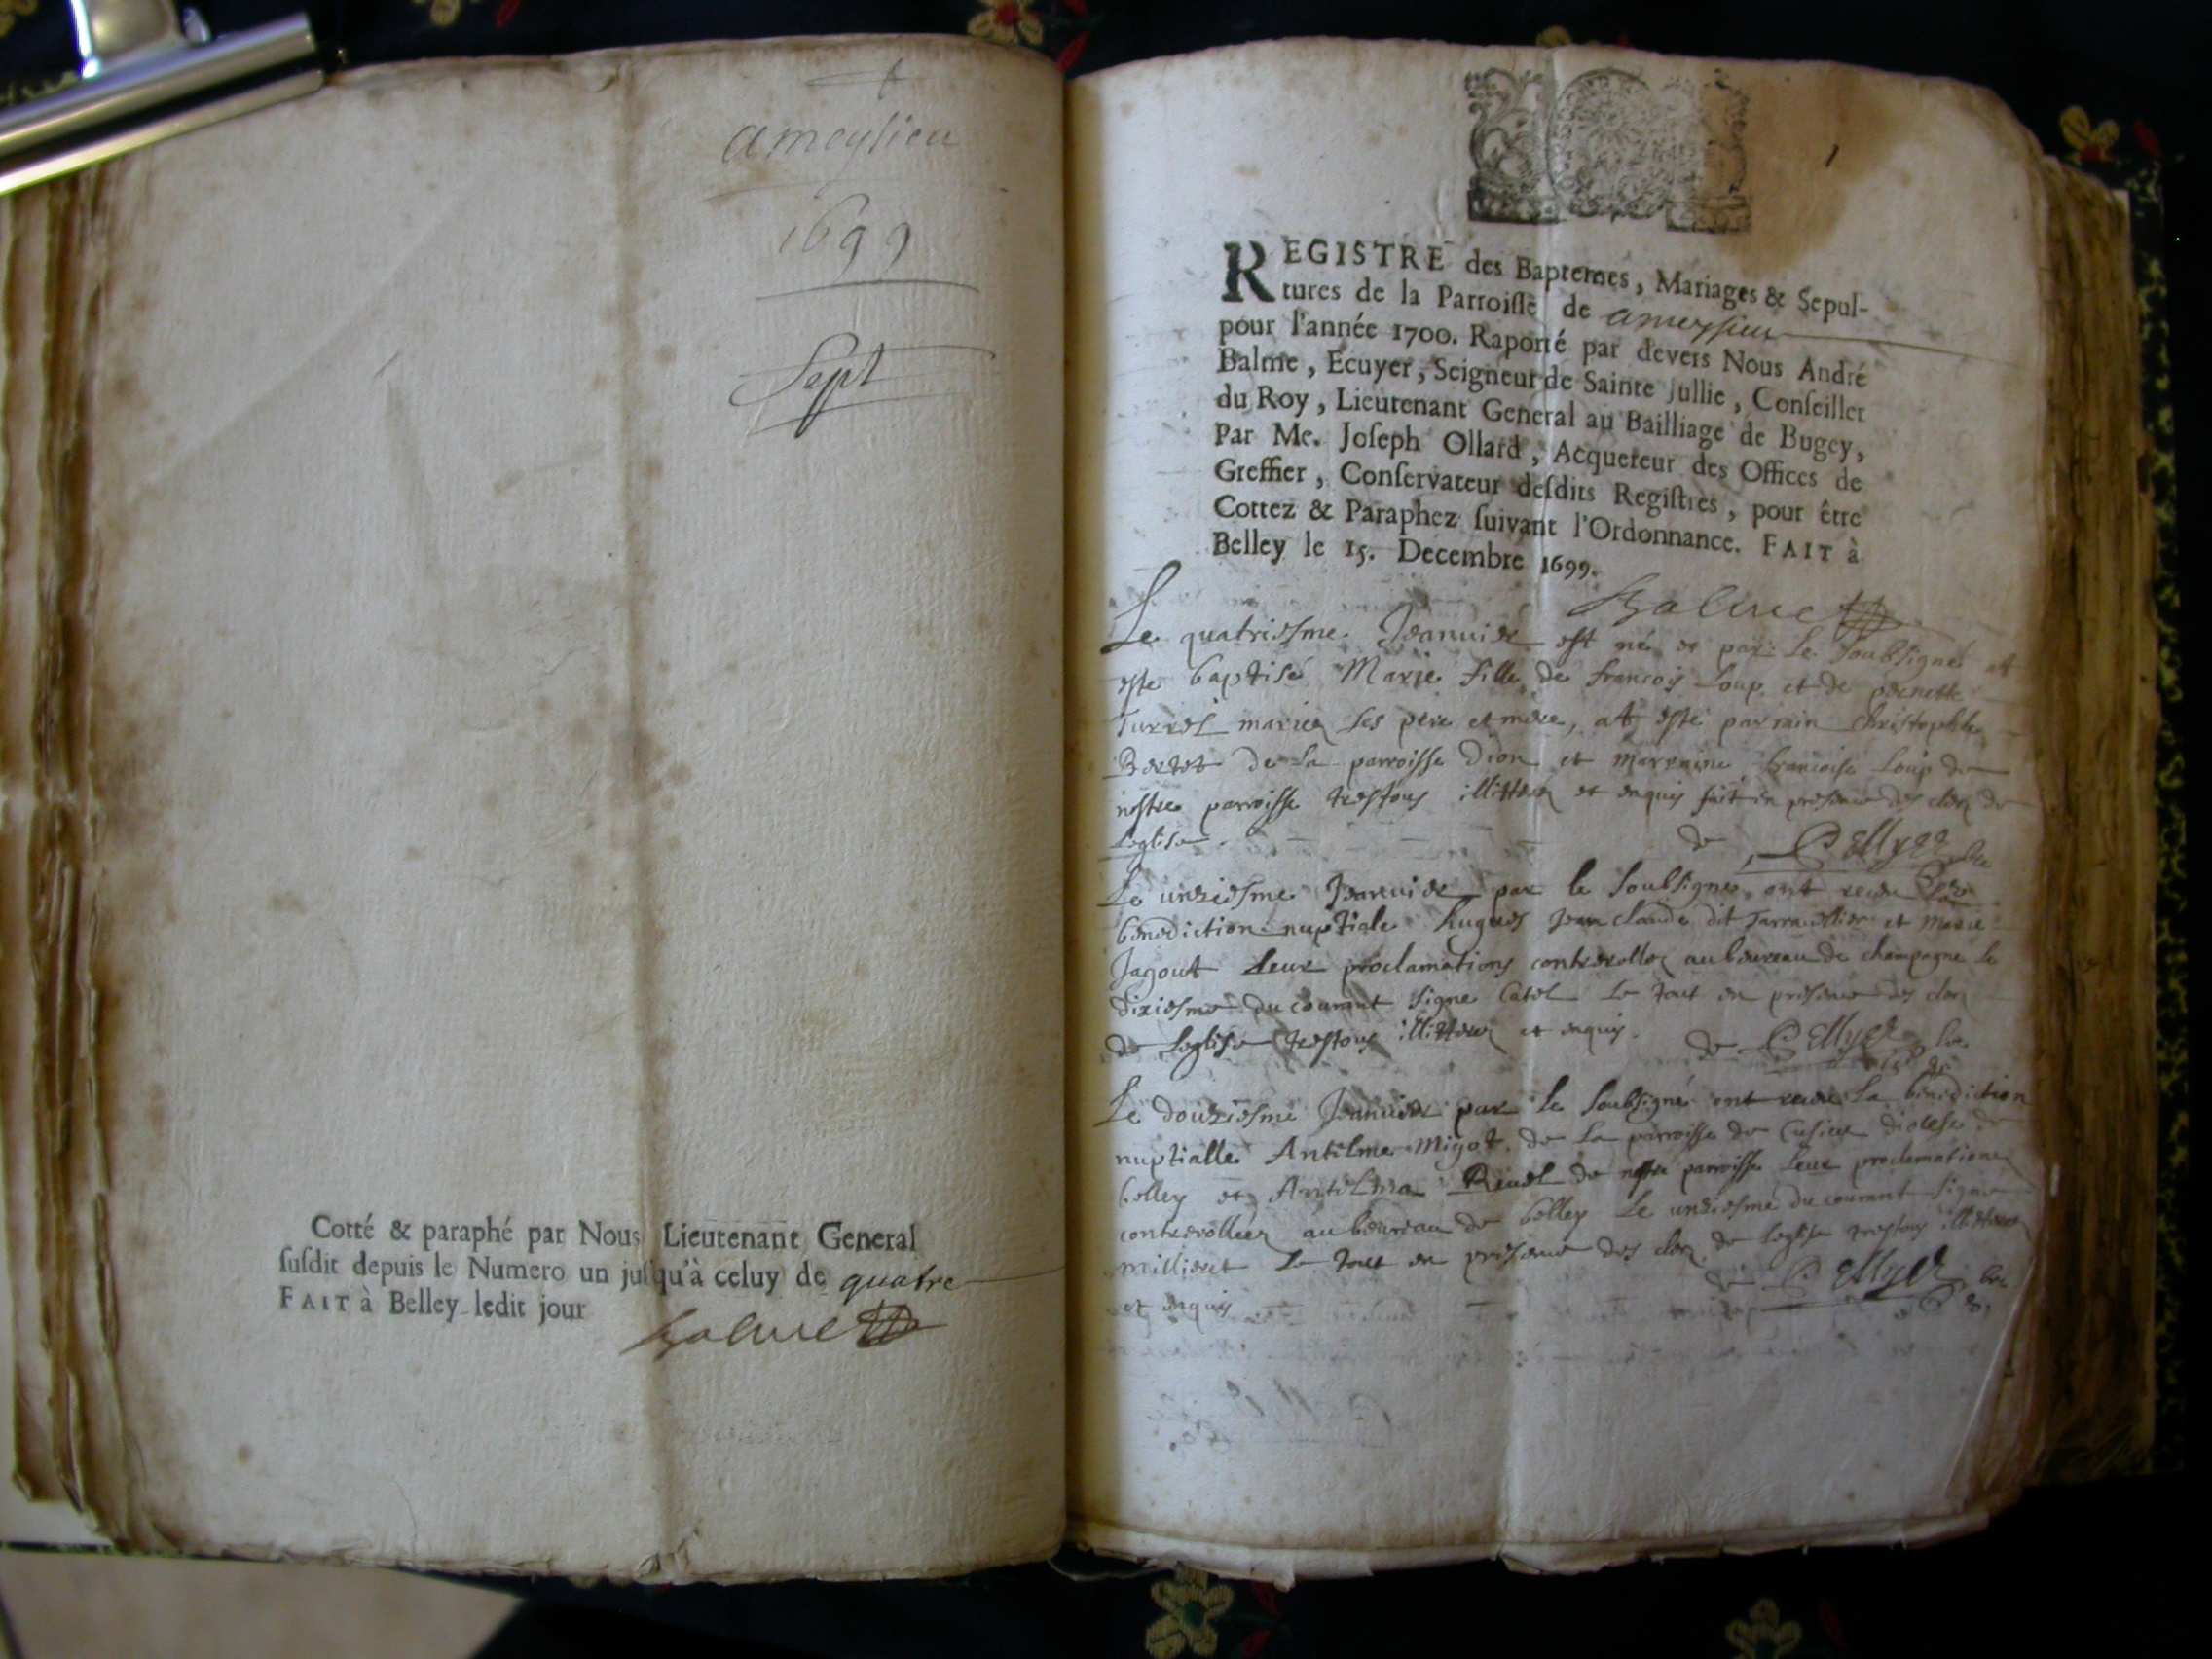 ameysieu
1699
Sept
Cotté & paraphé par Nous Lieutenant General
susdit depuis le Numero un jusqu'à celuy de quatre
FAIT à Belley ledit jour
Balme
1
REGISTRE des Baptemes, Mariages & Sepul-
tures de la Parroisse de ameysieu
pour l'année 1700. Raporté par devers Nous André
Balme, Ecuyer, Seigneur de Sainte Jullie, Conseiller
du Roy, Lieutenant General au Bailliage de Bugey,
Par Me. Joseph Ollard, Acquereur des Offices de
Greffier, Conservateur desdits Registres, pour être
Cottez & Paraphez suivant l'Ordonnance. FAIT à
Belley le 15. Decembre 1699.
Balme
Le quatriesme Jeanuier est né et par le soubsigné at
este baptisé Marie fille de francois Loup et de
Turrel mariez ses pere et mere, at esté parrain Christophle
Bertet de la parroisse Dion et marraine francoise Loup de
nostre parroisse trestous illitterez et enquis fait en presence des clers de
Leglise
de
Le unziesme Jeanuier par le soubsigné ont receu
benediction nuptiale hugues Jean claude dit et Marie
Jagout leur proclamations controrollez au bureau de champagne le
dixiesme du courant signe Catel Le tout en presence des clers
de Leglise trestous illitterez et enquis.
de
Le douziesme Jeanuier par le soubsigné ont receu La benediction
nuptialle Antelme Migot de La parroisse de Cusieu diocese de
belley et Antelma Reuel de nostre parroisse leur proclamations
controrollees au bureau de belley Le unziesme du courant signe
millieret Le tout en presence des clers de leglise trestous illitterez
et enquis
de